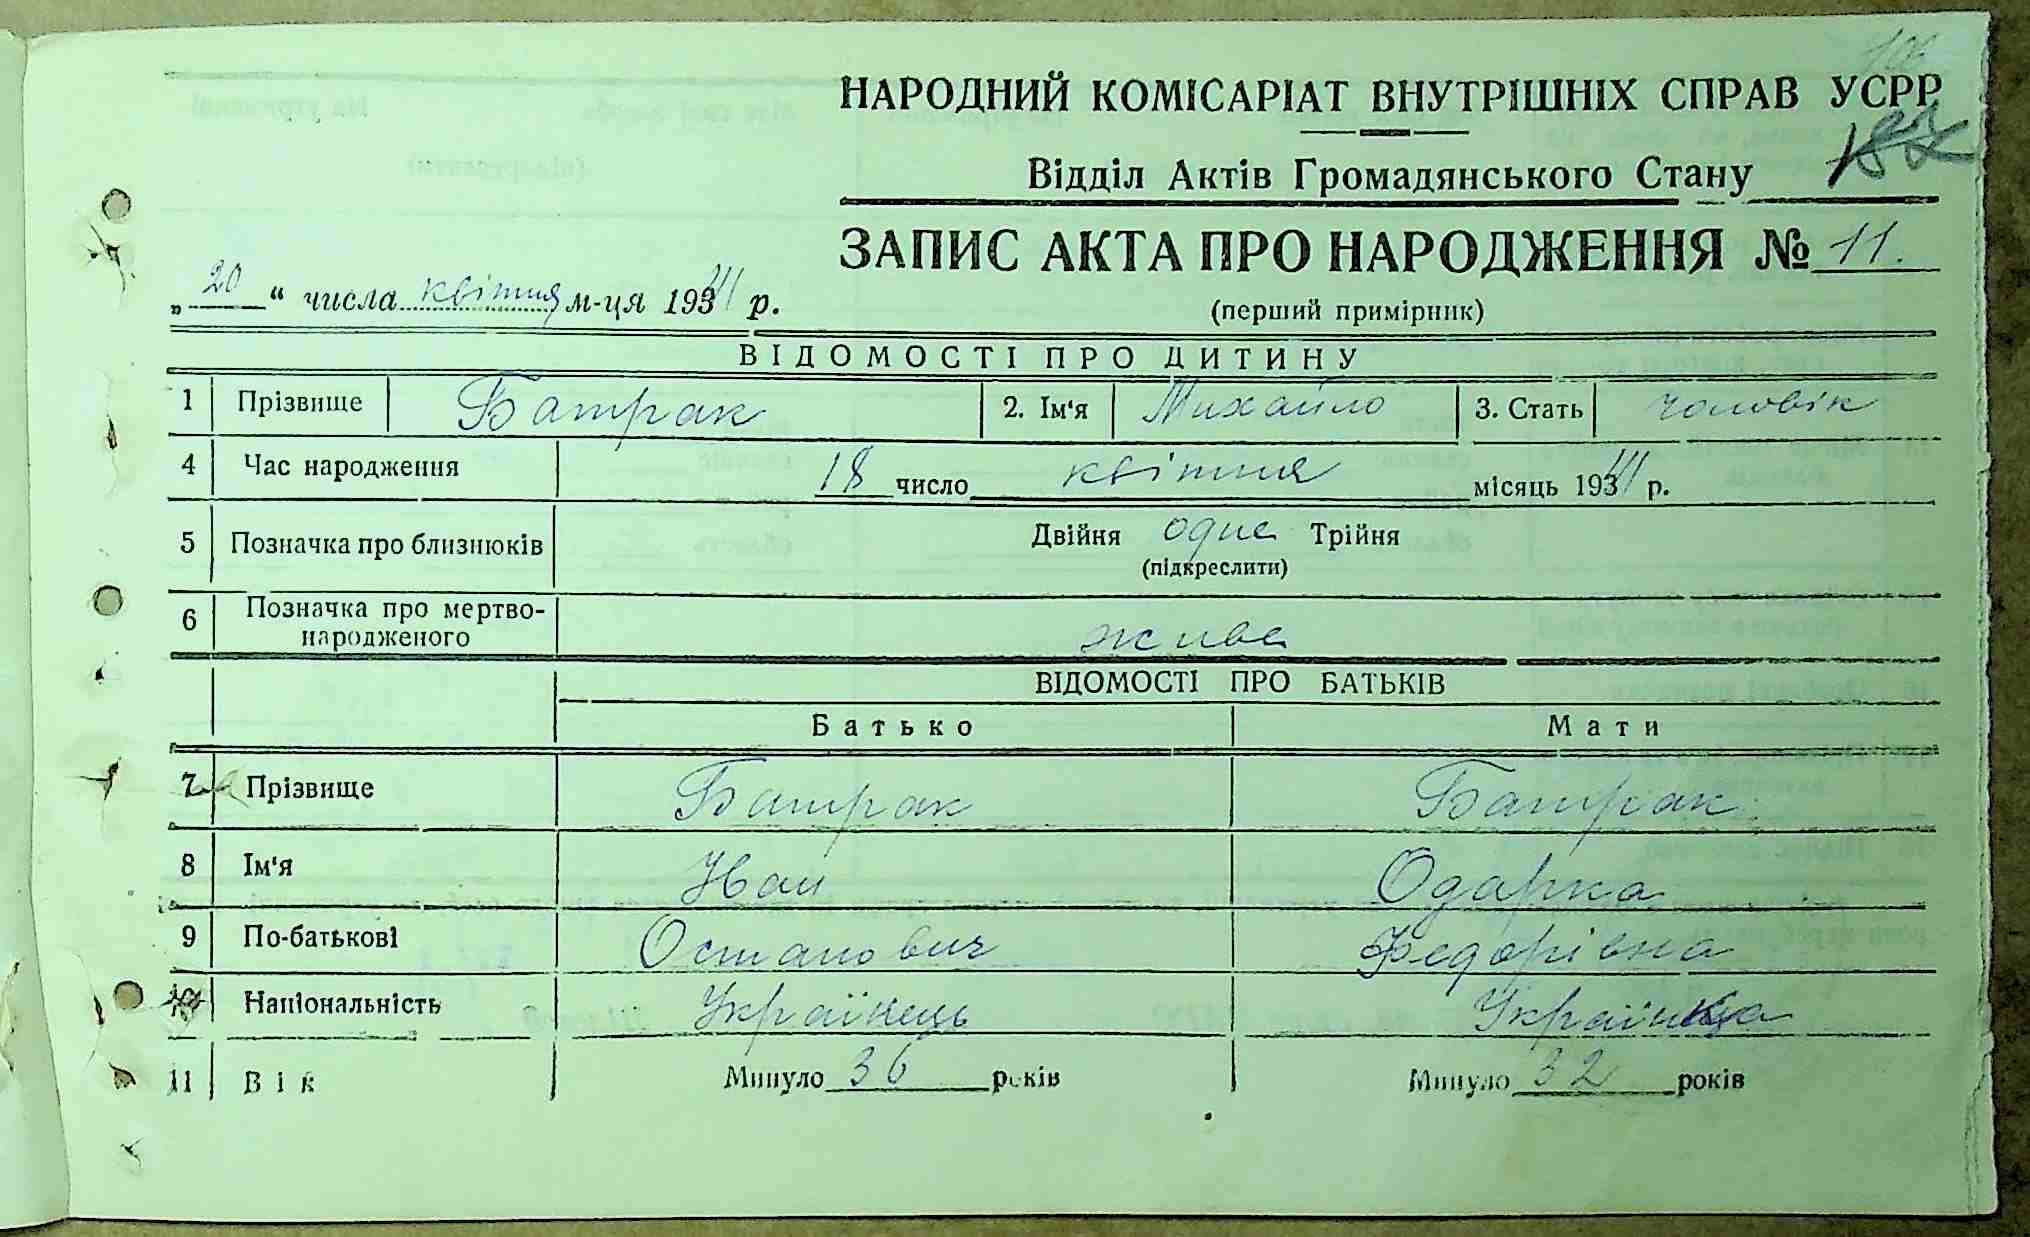 106
НАРОДНИЙ КОМІСАРІАТ ВНУТРІШНІХ СПРАВ УСРР
Відділ Актів Громадянського Стану
ЗАПИС АКТА ПРО НАРОДЖЕННЯ № 11.
„ 20 “ числа квітня м-ця 1941 р.
(перший примірник)
ВІДОМОСТІ ПРО ДИТИНУ
1 Прізвище Батрак 2. Ім'я Михайло 3. Стать чоловік
4 Час народження 18 число квітня місяць 1941 р.
5 Позначка про близнюків Двійня одне Трійня
(підкреслити)
6 Позначка про мертво-
народженого живе
ВІДОМОСТІ ПРО БАТЬКІВ
Батько Мати
7 Прізвище Батрак Батрак
8 Ім'я Іван Одарка
9 По-батькові Остапович Федорівна
10 Національність Українець Українка
11 Вік Минуло 36 років Минуло 32 років